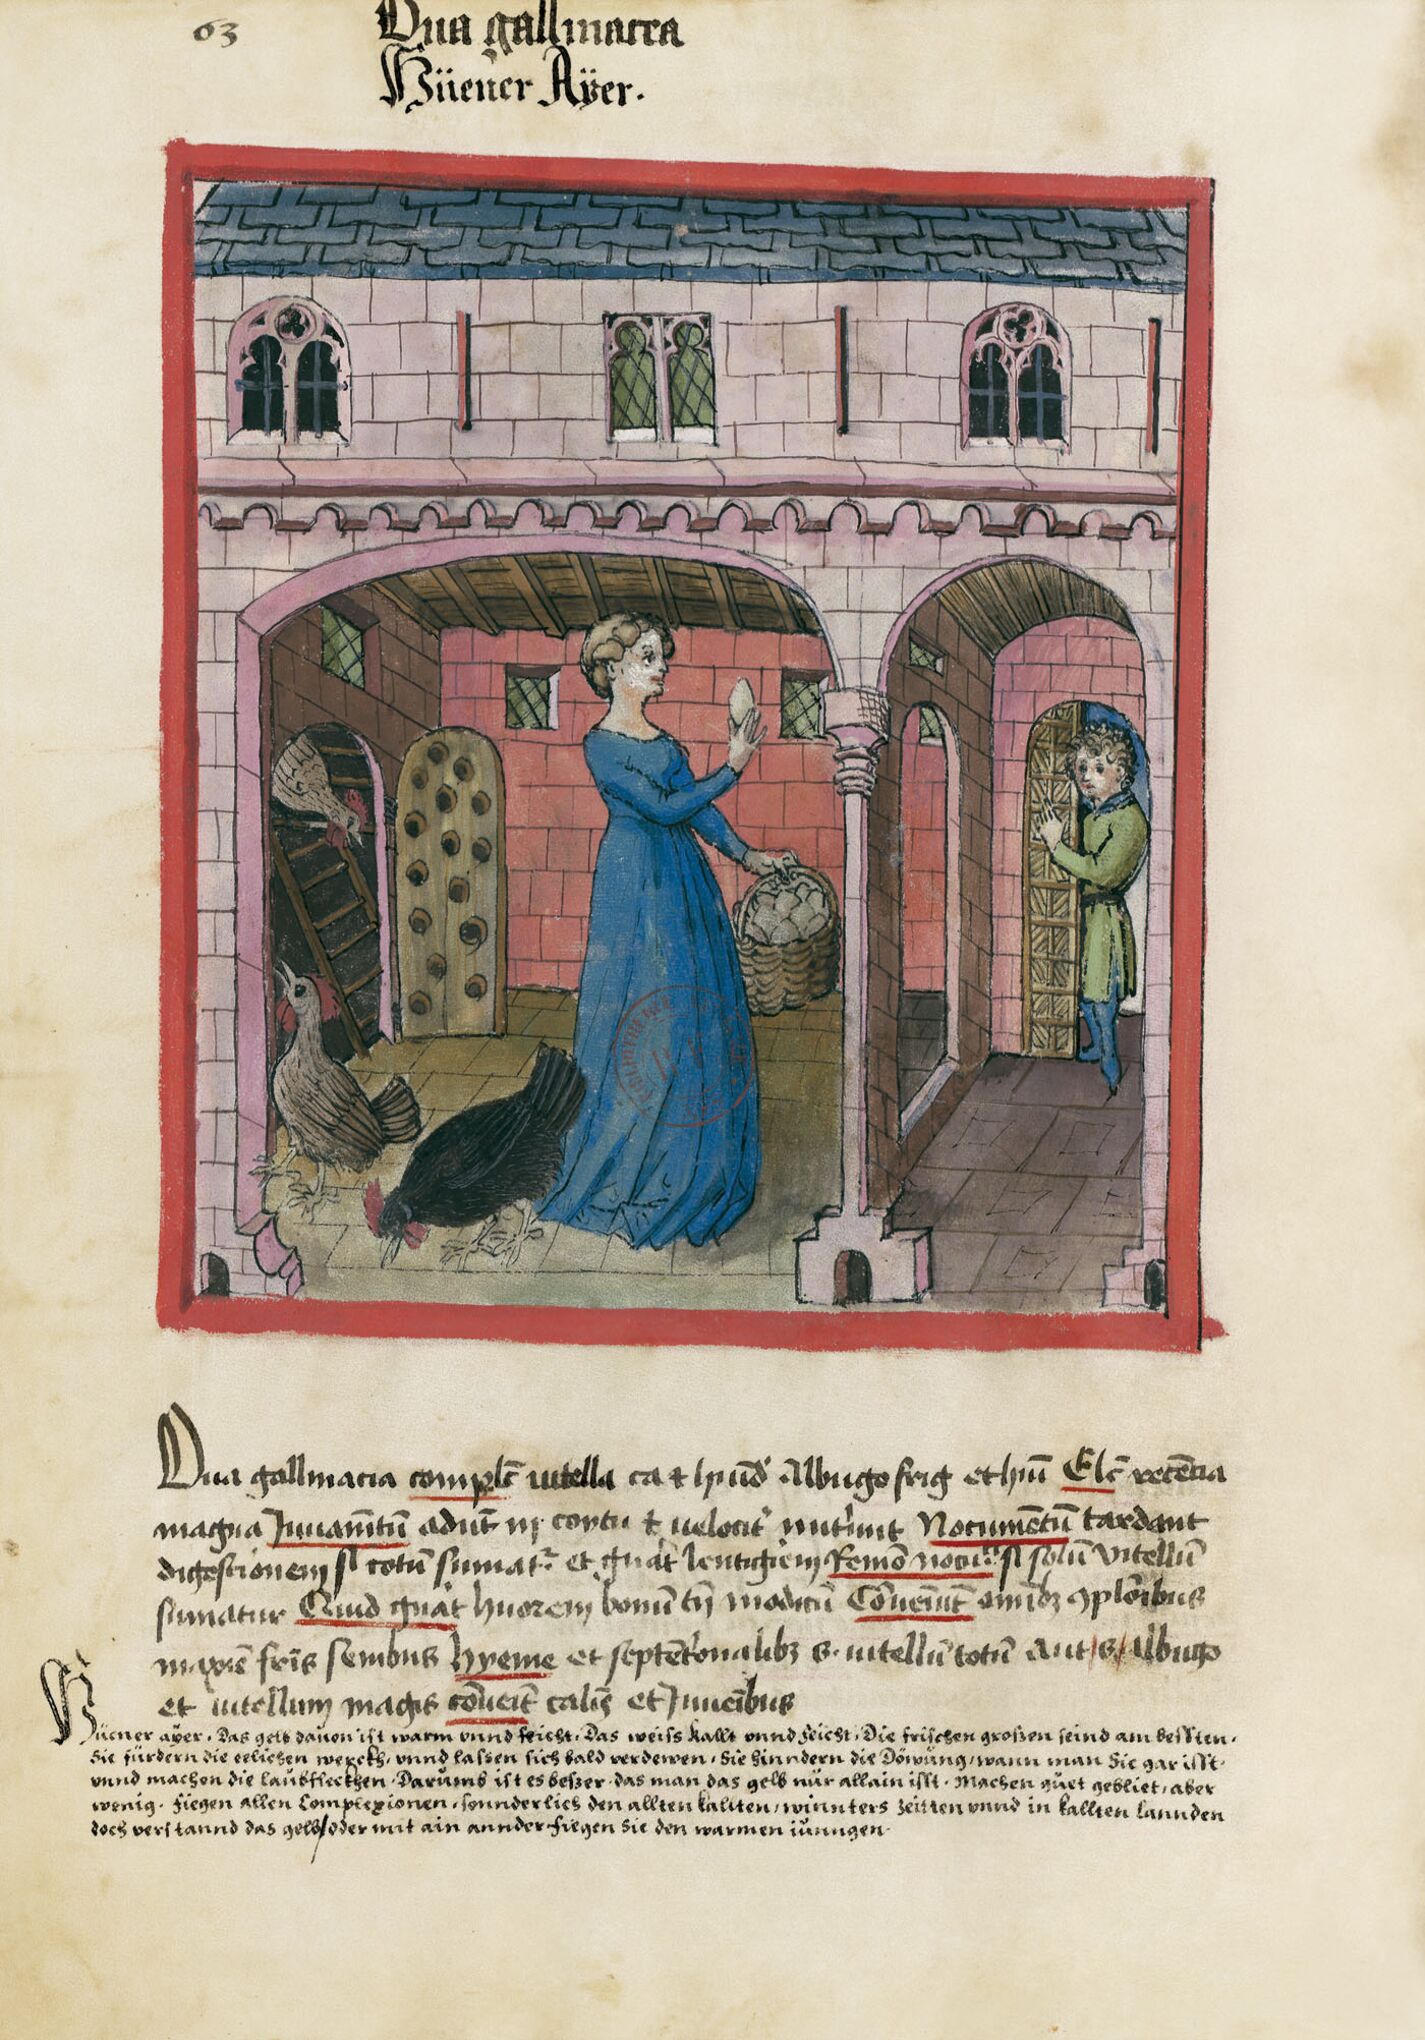 63
Ova gallinacea
Hüener Aÿer.
Ova gallinacia complc̄ uitella ca & hūd Albugo frig et hūd Elc̄ recētia
magna Juuamtū 
 velocit' nutriunt Nocumētū tardant
digestionem si totū sumat' et gn̄āt lentiginem Remō nocu' si solū Vitellū
sumatur Quid gn̄āt huorem bonū modicū Cōueniūt omībȝ ꝯplōibus
maxīe fr̄is senibus hyeme et septētrionalibȝ s. uitellū totū Aut s Albugo
et uitellum magis cōuēit calis et Juuēibus
Hüener aÿer. Das gelb dauon ist warm vnnd feicht. Das weiss kallt vnnd feicht. Die frischen grossen seind am bessten.
Sie fürdern die eelichen werckh, vnnd lassen sich bald verdewen. Sie hinndern die Döwung, wann man Sie gar isst.
vnnd machen die laubfleckhen. Darumb ist es besser das man das gelb nür allain isst. Machen guet geblüet, aber
wenig. Fiegen allen Complexionen, sonnderlich den allten kallten, winnters Zeitten vnnd in kallten lannden
doch verstannd das gelb, oder mit ain annder fiegen Sie den warmen iunngen.